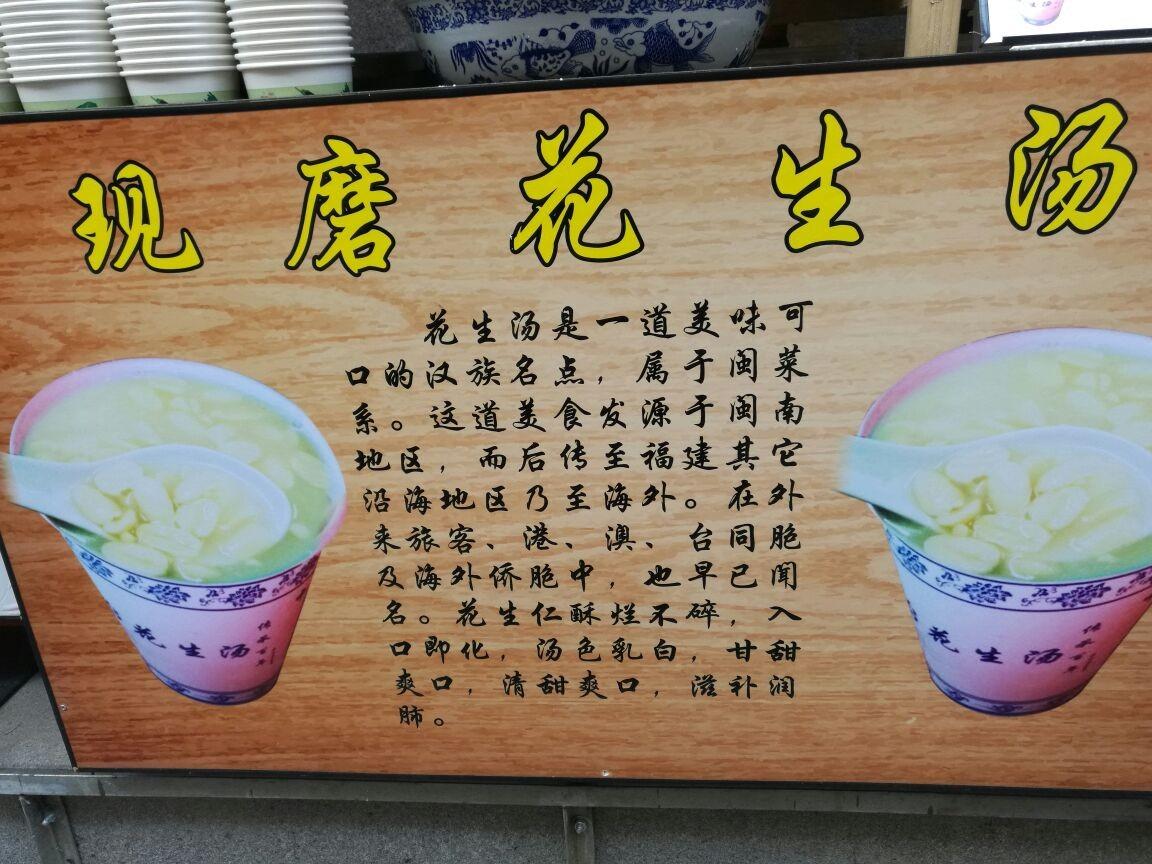 现磨花生汤
花生汤是一道美味可
口的汉族名点，属于闽菜
系。这道美食发源于闽南
地区，而后传至福建其它
沿海地区乃至海外。在外
来旅客、港、澳、台同胞
及海外侨胞中，也早已闻
名。花生仁酥烂不碎，入
口即化，汤色乳白，甘甜
爽口，清甜爽口，滋补润
肺。
花生汤
传承百年
花生汤
传承百年